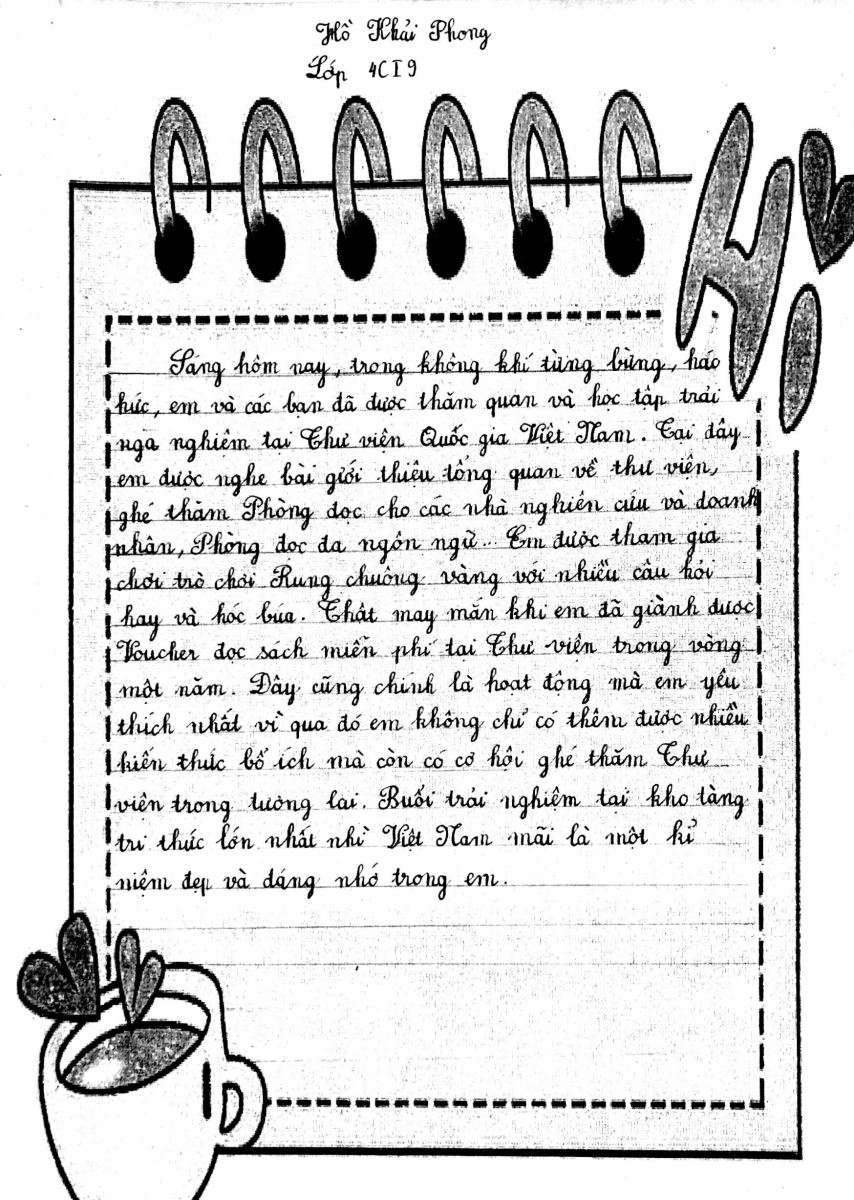 Hồ Khải Phong
Lớp 4CI9
Hi
Sáng hôm nay, trong không khí từng bừng, háo
hức, em và các bạn đã được thăm quan và học tập trải
nga nghiệm tại Thư viện Quốc gia Việt Nam. Tại đây
em được nghe bài giới thiệu tổng quan về thư viện,
ghé thăm Phòng đọc cho các nhà nghiên cứu và doanh
nhân, Phòng đọc đa ngôn ngữ... Em được tham gia
chơi trò chơi Rung chuông vàng với nhiều câu hỏi
hay và hóc búa. Thật may mắn khi em đã giành được
Voucher đọc sách miễn phí tại Thư viện trong vòng
một năm. Đây cũng chính là hoạt động mà em yêu
thích nhất vì qua đó em không chỉ có thêm được nhiều
kiến thức bổ ích mà còn có cơ hội ghé thăm Thư
viện trong tương lai. Buổi trải nghiệm tại kho tàng
tri thức lớn nhất nhì Việt Nam mãi là một kỉ
niệm đẹp và đáng nhớ trong em.